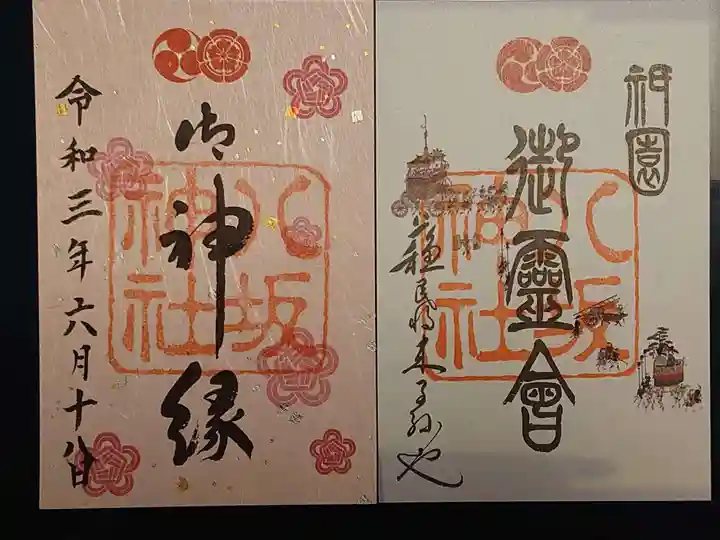 御神縁
八坂
神社
令和三年六月十八日
祇園
御靈會
八坂
神社
蘇民将来子孫也